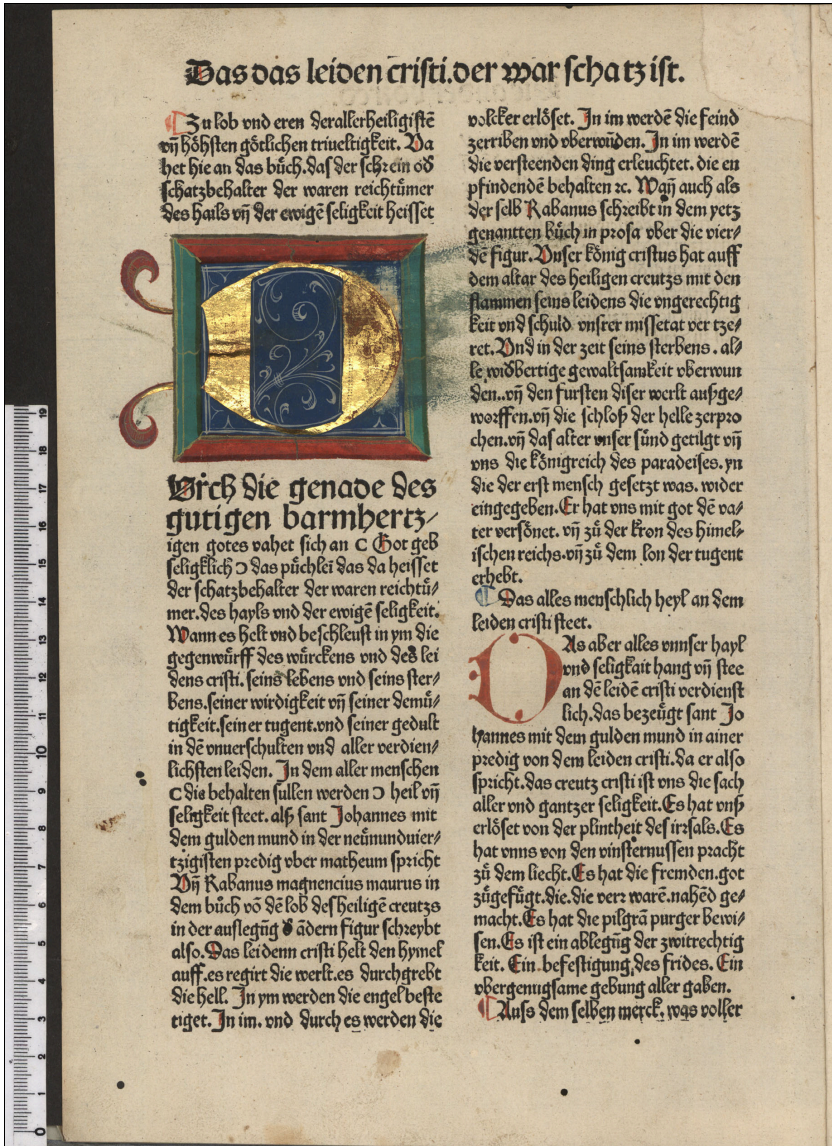 Das das leiden cristi. der war schatz ist.
¶ Zu lob vnd eren der allerheiligistē
vn̄ höhsten götlichen triueltigkeit. Va
het hie an das bůch. das der schrein od̄
schatzbehalter der waren reichtümer
des hails vn̄ der ewigē seligkeit heisset
DVrch die genade des
gutigen barmhertz-
igen gotes vahet sich an C Got geb
seligklich Ɔ das půchlei das da heisset
der schatzbehalter der waren reichtü-
mer. des hayls vnd der ewigē seligkeit.
Wann es helt vnd beschleust in ym die
gegenwürff des würckens vnd des lei
dens cristi. seins lebens vnd seins ster-
bens. seiner wirdigkeit vn̄ seiner demü-
tigkeit. seiner tugent. vnd seiner gedult
in dē vnuerschulten vnd aller verdien-
lichsten leiden. In dem aller menschen
C die behalten sullen werden Ɔ heil vn̄
seligkeit steet. alß sant Johannes mit
dem gulden mund in der neünunduier-
tzigisten predig vber matheum spricht
Vn̄ Rabanus magnencius maurus in
dem bůch vō dē lob des heiligē creutzs
in der auslegūg d̄ ādern figur schreybt
also. Das leidenn cristi helt den hymel
auff. es regirt die werlt. es durchgrebt
die hell. In ym werden die engel beste
tiget. In im. vnd durch es werden die
volcker erlöset. In im werdē die feind
zerriben vnd vberwūden. In im werdē
die versteenden ding erleuchtet. die en
pfindendē behalten ꝛc. Wan̄ auch als
der selb Rabanus schreibt in dem yetz
genantten bůch in prosa vber die vier-
dē figur. Vnser könig cristus hat auff
dem altar des heiligen creutzs mit den
flammen seins leidens die vngerechtig
keit vnd schuld vnsrer missetat ver tze-
ret. Vnd in der zeit seins sterbens. al-
le widbertige gewaltsamkeit vberwun
den.. vn̄ den fursten diser werlt außge-
worffen. vn̄ die schloß der helle zerpro
chen. vn̄ das alter vnser sünd getilgt vn̄
vns die königreich des paradeises. yn
die der erst mensch gesetzt was. wider
eingegeben. Er hat vns mit got dē va-
ter versönet. vn̄ zů der kron des himel-
ischen reichs. vn̄ zů dem lon der tugent
erhebt.
¶ Das alles menschlich heyl an dem
leiden cristi steet.
DAs aber alles vnnser hayl
vnd seligkait hang vn̄ stee
an dē leidē cristi verdienst
lich. das bezeügt sant Jo
hannes mit dem gulden mund in ainer
predig von dem leiden cristi. da er also
spricht. das creutz cristi ist vns die sach
aller vnd gantzer seligkeit. Es hat vnß
erlöset von der plintheit des irrsals. Es
hat vnns von den vinsternussen pracht
zů dem liecht. Es hat die fremden. got
zůgefügt. die. die verr warē. nahēd ge-
macht. Es hat die pilgrā purger bewi-
sen. Es ist ein ablegūg der zwitrechtig
keit. Ein befestigung, des frides. Ein
vbergenugsame gebung aller gaben.
¶ Auss dem selben merck. was voller
0 1 2 3 4 5 6 7 8 9 10 11 12 13 14 15 16 17 18 19